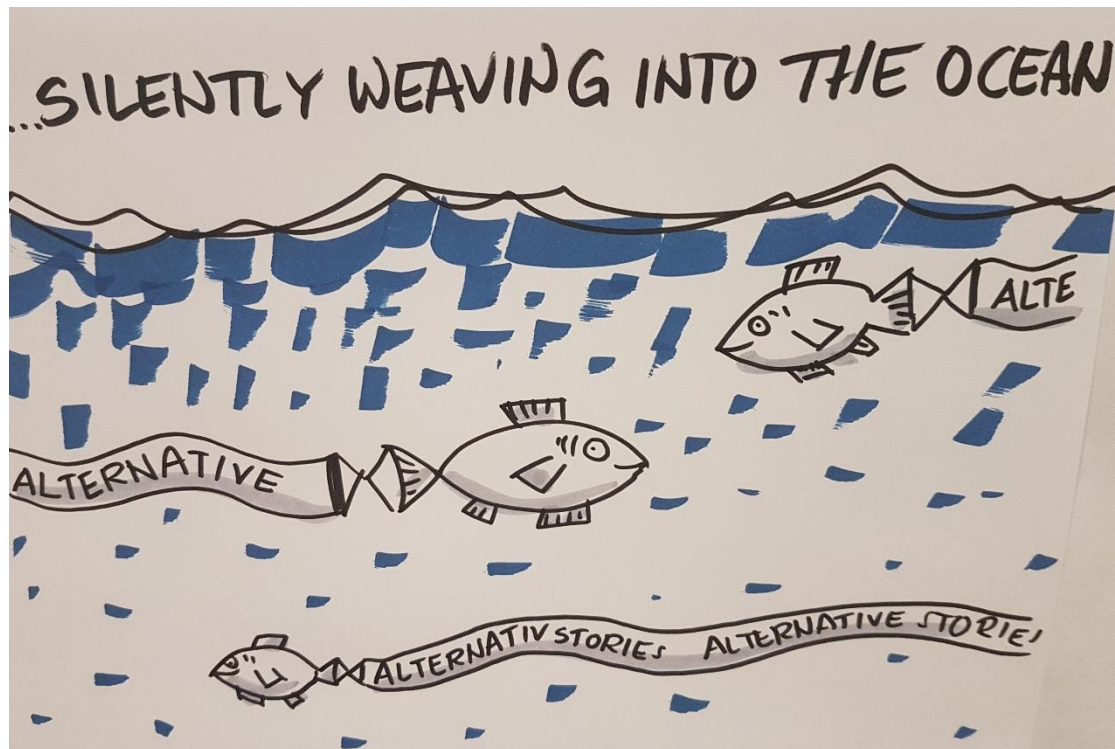 ...SILENTLY WEAVING INTO THE OCEAN
ALTE
ALTERNATIVE
ALTERNATIV STORIES ALTERNATIVE STORIES